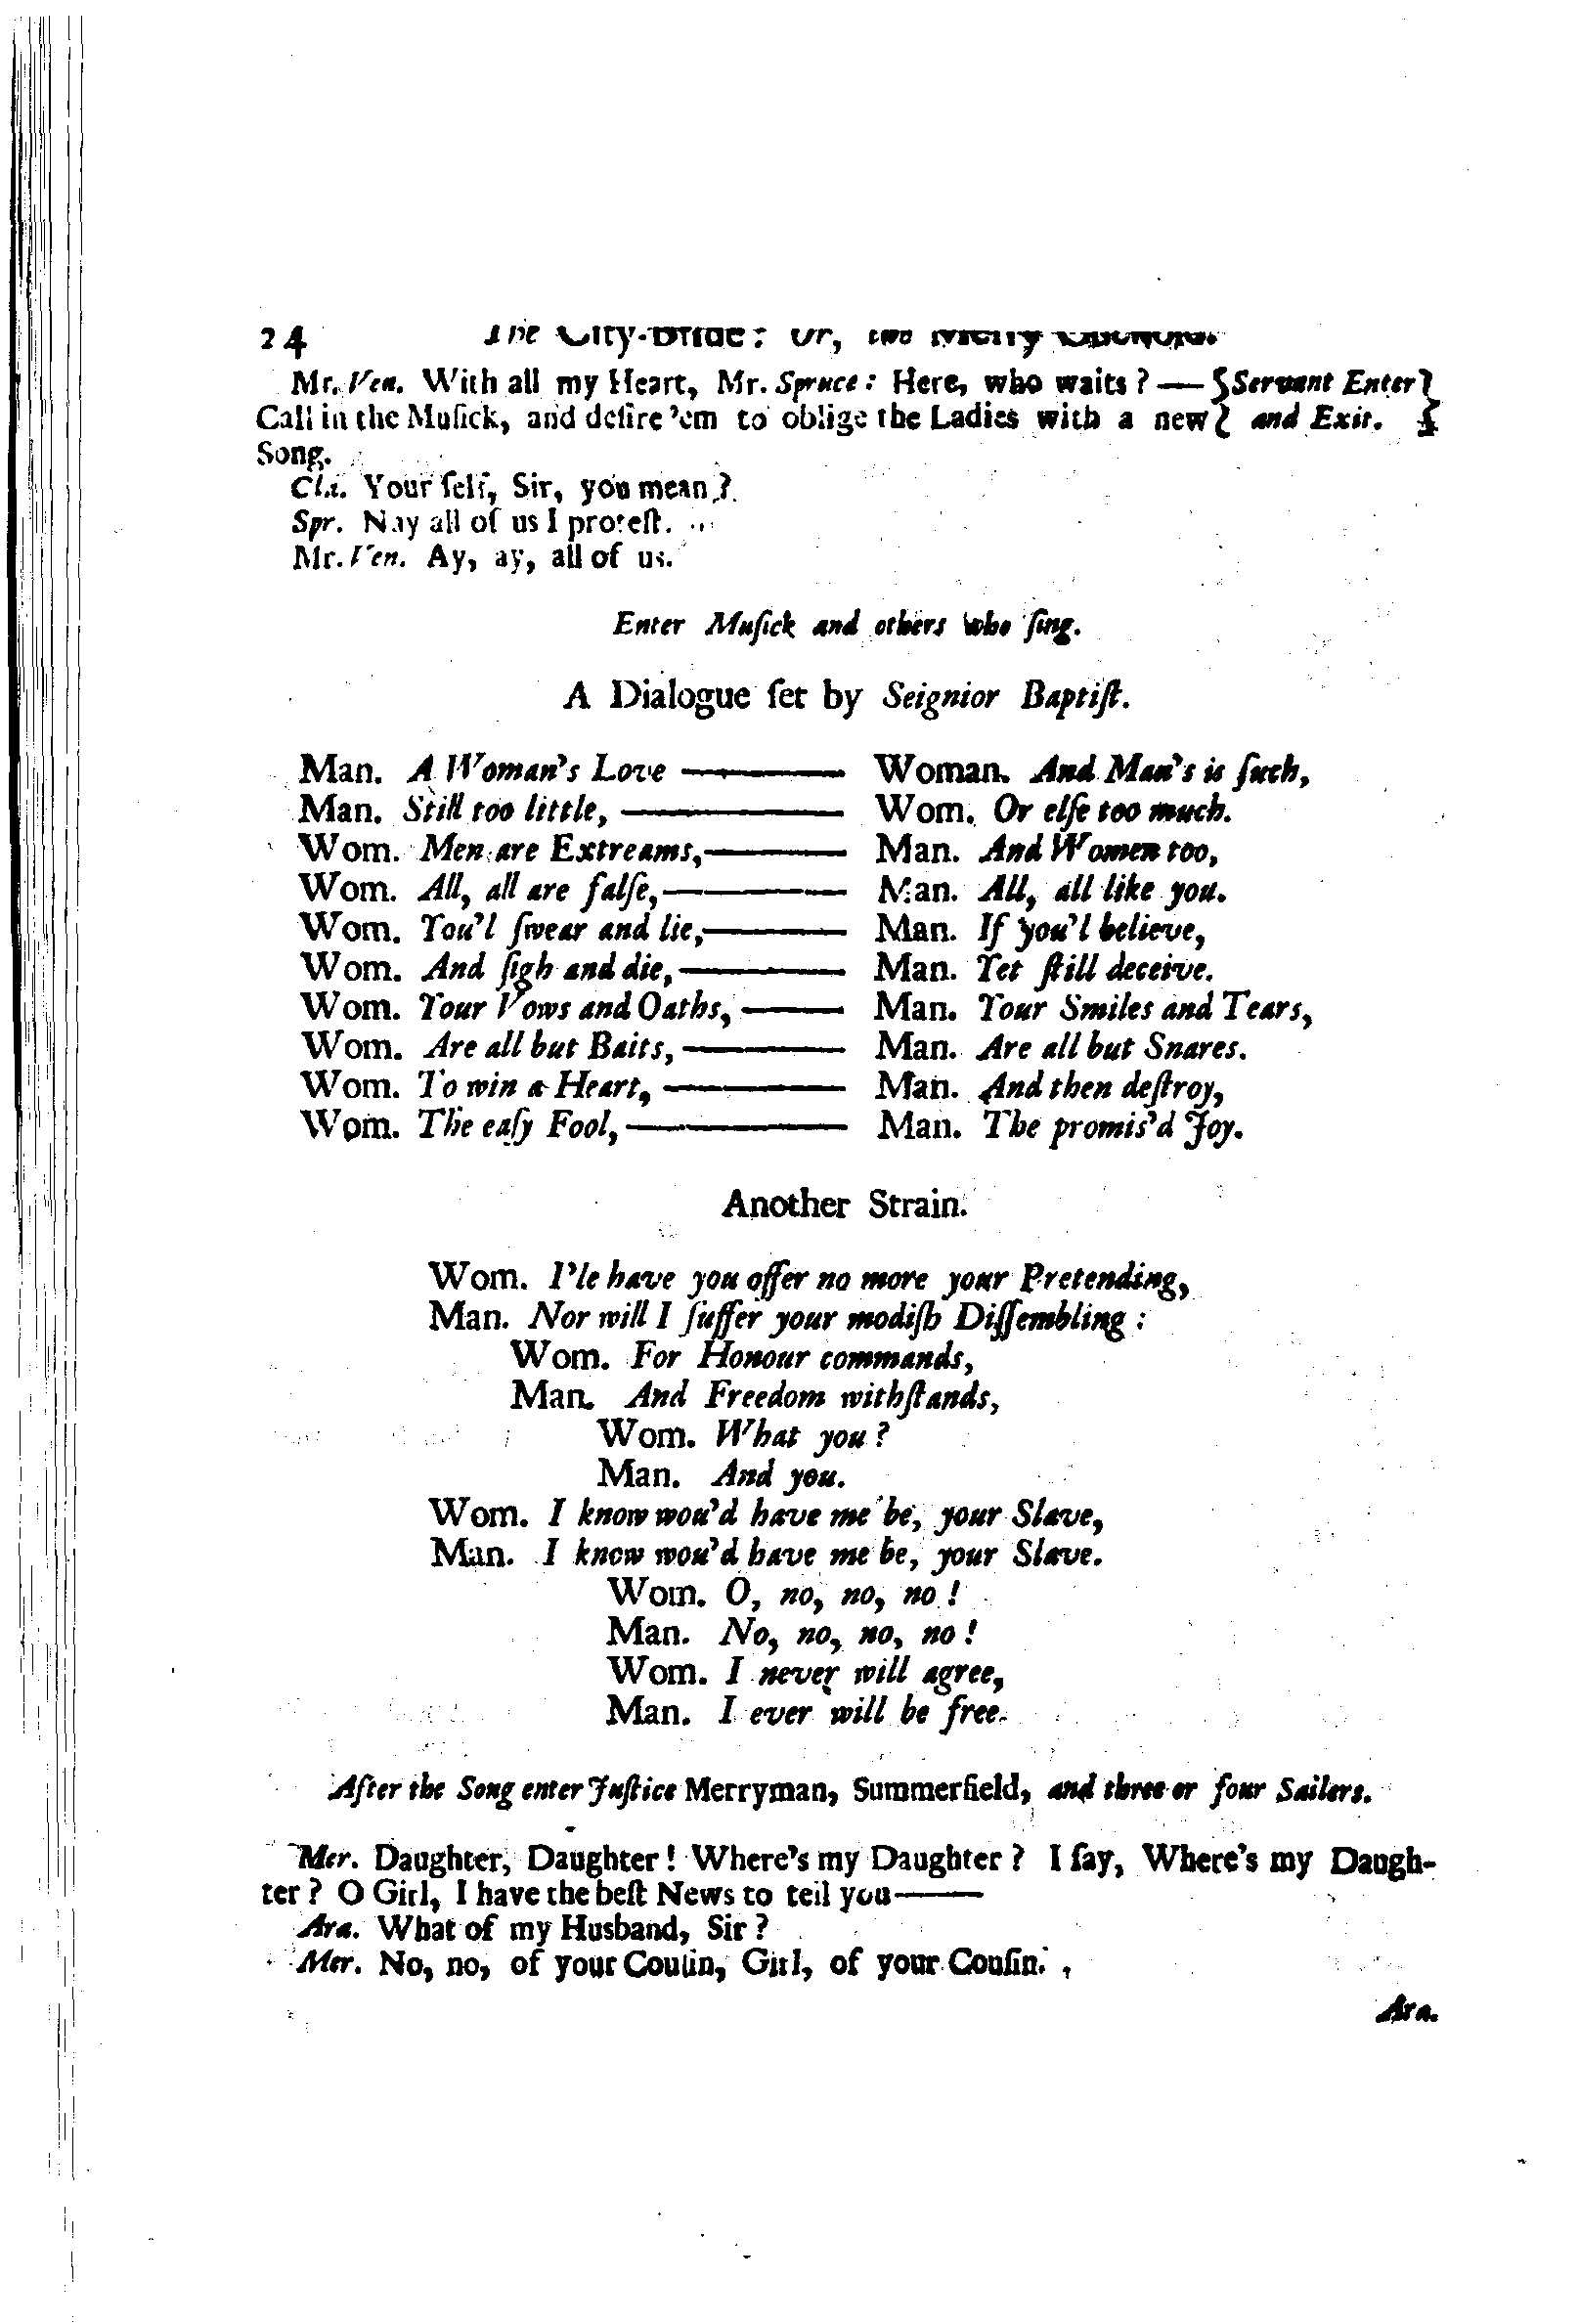 24 The City-Bride: Or, the Merry Cuckold.
Mr. Ven. With all my Heart, Mr. Spruce: Here, who waits? — {Servant Enter}
Call in the Muſick, and deſire 'em to oblige the Ladies with a new { and Exit. }
Song.
Cla. Your ſelf, Sir, you mean?
Spr. Nay all of us I proteſt.
Mr. Ven. Ay, ay, all of us.
Enter Muſick and others who ſing.
A Dialogue ſet by Seignior Baptiſt.
Man. A Woman's Love ——— Woman. And Man's is ſuch,
Man. Still too little, ——— Wom. Or elſe too much.
Wom. Men are Extreams, ——— Man. And Women too,
Wom. All, all are falſe, ——— Man. All, all like you.
Wom. You'l ſwear and lie, ——— Man. If you'l believe,
Wom. And ſigh and die, ——— Man. Yet ſtill deceive.
Wom. Your Vows and Oaths, ——— Man. Your Smiles and Tears,
Wom. Are all but Baits, ——— Man. Are all but Snares.
Wom. To win a Heart, ——— Man. And then deſtroy,
Wom. The eaſy Fool, ——— Man. The promis'd Joy.
Another Strain.
Wom. I'le have you offer no more your Pretending,
Man. Nor will I ſuffer your modiſh Diſſembling:
Wom. For Honour commands,
Man. And Freedom withſtands,
Wom. What you?
Man. And you.
Wom. I know wou'd have me be, your Slave,
Man. I know wou'd have me be, your Slave.
Wom. O, no, no, no!
Man. No, no, no, no!
Wom. I never will agree,
Man. I ever will be free.
After the Song enter Juſtice Merryman, Summerfield, and three or four Sailers.
Mer. Daughter, Daughter! Where's my Daughter? I ſay, Where's my Daugh-
ter? O Girl, I have the beſt News to tell you———
Ara. What of my Husband, Sir?
Mer. No, no, of your Couſin, Girl, of your Couſin.
Ara.